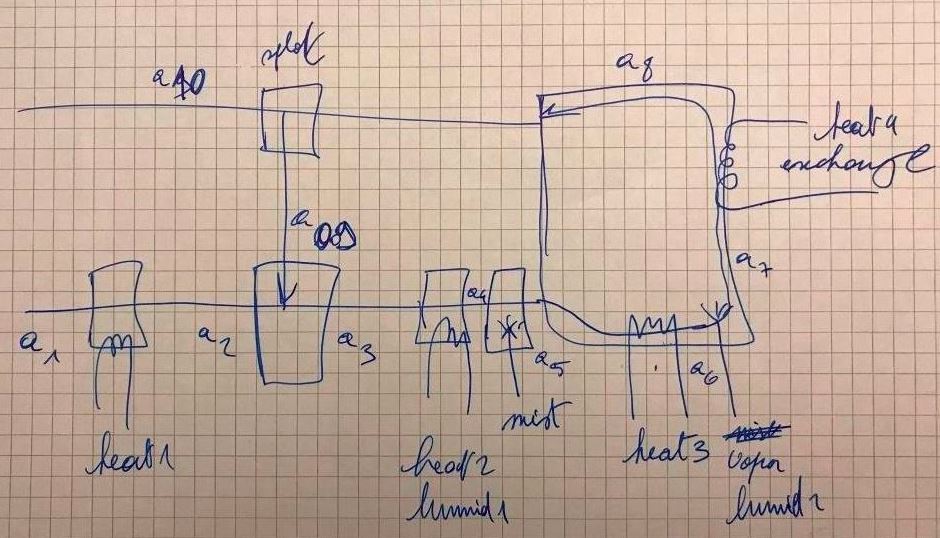 split
a10
a8
heat4
exchange
a09
a7
a1
a2
a3
a4
a5
a6
heat1
heat2
humid1
mist
heat3
vapor
humid2